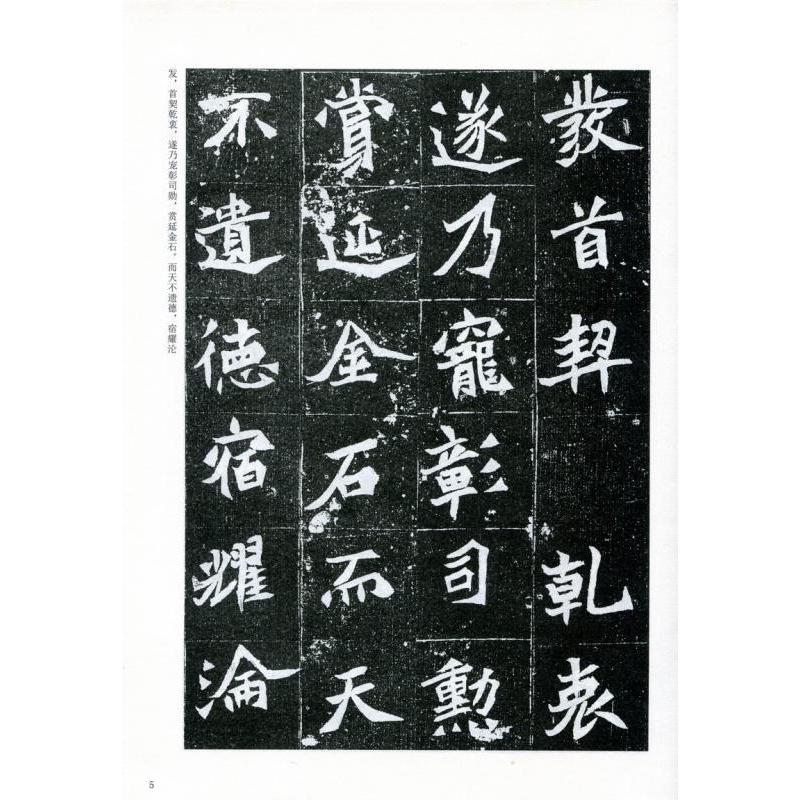 發首契乾衷
遂乃寵彰司勳
賞延金石而天
不遺德宿耀淪
发，首契乾衷，遂乃宠彰司勋，赏延金石。而天不遗德，宿耀沦
5